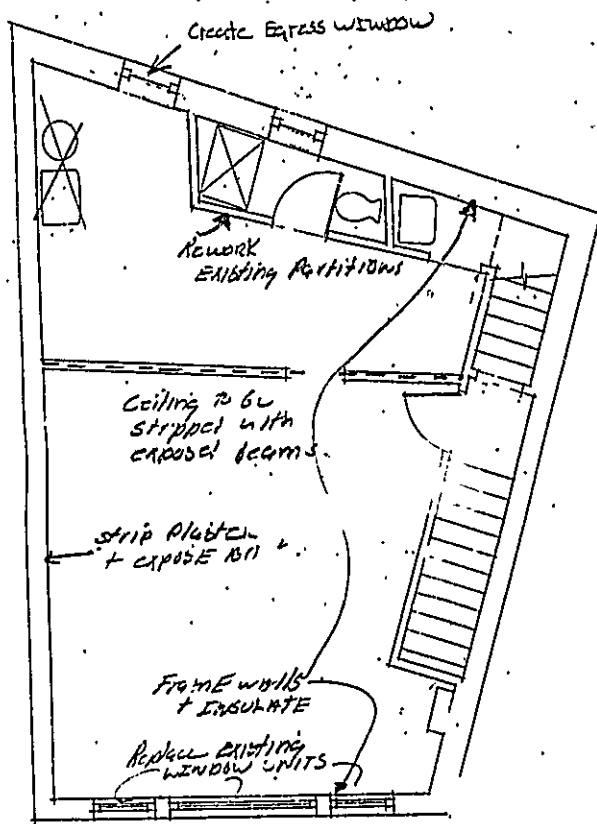 Create Egress WINDOW
Rework
Existing Partitions
Ceiling to be
stripped with
exposed beams
strip Plaster
+ expose
FramE walls
+ INSULATE
Replace existing
WINDOW UNITS